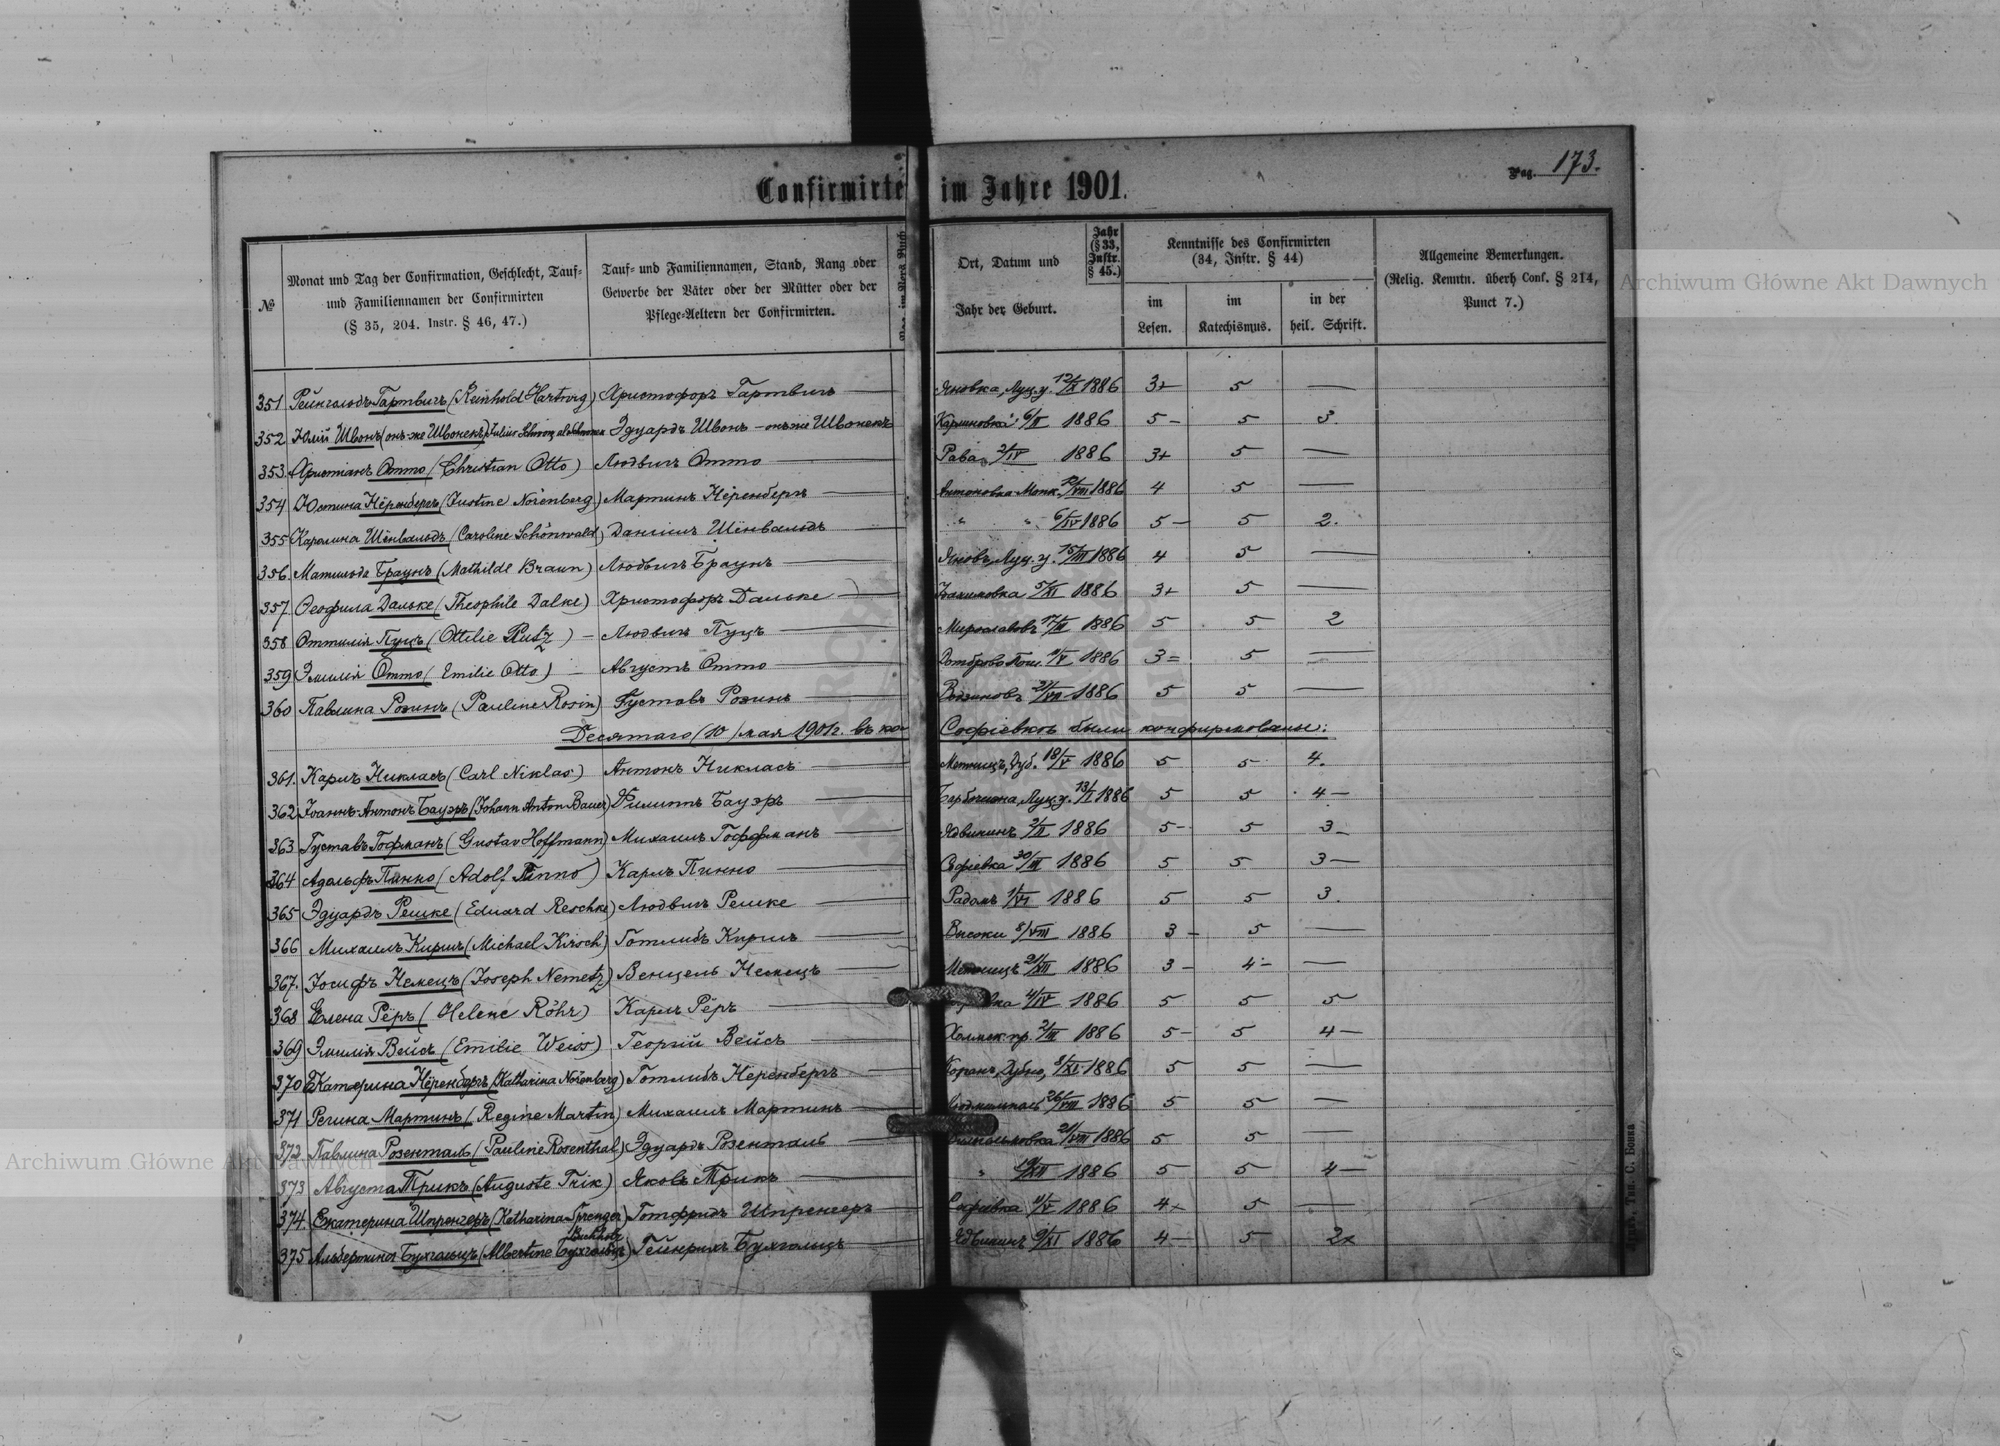 Confirmirte im Jahre 1901.
Pag. 173.
№
Monat und Tag der Confirmation, Geschlecht, Tauf- und Familiennamen der Confirmirten (§ 35, 204. Instr. § 46, 47.)
Tauf- und Familiennamen, Stand, Rang oder Gewerbe der Väter oder der Mütter oder der Pflege-Aeltern der Confirmirten.
Ort, Datum und Jahr der Geburt.
Jahr (§ 33, Instr. § 45.)
Kenntnisse des Confirmirten (34, Instr. § 44)
im Lesen.
im Katechismus.
in der heil. Schrift.
Allgemeine Bemerkungen. (Relig. Kenntn. überh. Conf. § 214, Punct 7.)
351 Рейнгольдъ Гартвигъ (Reinhold Hartwig) Христофоръ Гартвигъ — Яновка, Луц. у. 12/X 1886 3+ 5 —
352 Юлій Швонъ (онъ-же Швонекъ) Эдуардъ Швонъ – онъ же Швонекъ 6/II 1886 5 – 5 3.
353 Христіанъ Отто (Christian Otto) Людвигъ Отто — Рава 2/IV 1886 3+ 5 —
354 Юстина Нёренбергъ (Justine Nörenberg) Мартинъ Нёренбергъ — Антоновка 1886 4 5 —
355 Каролина Шёнвальдъ (Caroline Schönwald) Даніилъ Шёнвальдъ „ „ 6/IV 1886 5 – 5 2.
356. Матильда Браунъ (Mathilde Braun) Людвигъ Браунъ — Яновъ, Луц. у. 15/III 1886 4 5 —
357 Ѳеофила Дальке (Theophile Dalke) Христофоръ Дальке — 5/XI 1886 3+ 5 —
358 Оттилія Пуцъ (Ottilie Putz) – Людвигъ Пуцъ — Мирославовъ 17/II 1886 5 5 2
359 Эмилія Отто (Emilie Otto) Августъ Отто — 1886 3= 5 —
360 Павлина Розинъ (Pauline Rosin) Густавъ Розинъ — 1886 5 5 —
Десятаго (10) мая 1901 г. въ кол. Софіевкѣ были конфирмованы:
361. Карлъ Никласъ (Carl Niklas) Антонъ Никласъ — Дуб. 18/V 1886 5 5 4.
362 Іоаннъ-Антонъ Бауэръ (Johann Anton Bauer) Филиппъ Бауэръ — Луц. у. 13/I 1886 5 5 4 –
363 Густавъ Гофманъ (Gustav Hoffmann) Михаилъ Гоффманъ — Ядвининъ 2/II 1886 5 – 5 3 –
364 Адольфъ Пинно (Adolf Pinno) Карлъ Пинно — Софіевка 30/III 1886 5 5 3 –
365 Эдуардъ Решке (Eduard Reschke) Людвигъ Решке — Радомъ 1/VI 1886 5 5 3.
366 Михаилъ Киршъ (Michael Kirsch) Готлибъ Киршъ — Высоки 8/VIII 1886 3 – 5 —
367. Іосифъ Немецъ (Joseph Nemetz) Венцель Немецъ — 21/XII 1886 3 – 4 – —
368 Елена Рёръ (Helene Röhr) Карлъ Рёръ — 4/IV 1886 5 5 5
369 Эмилія Вейсъ (Emilie Weiss) Георгій Вейсъ — 2/III 1886 5 – 5 4 –
370 Катерина Нёренбергъ (Katharina Nörenberg) Готлибъ Неренбергъ — Дубно, 8/XI 1886 5 5 —
371 Регина Мартинъ (Regine Martin) Михаилъ Мартинъ — 26/VIII 1886 5 5 —
372 Павлина Розенталь (Pauline Rosenthal) Эдуардъ Розенталь — 21/VIII 1886 5 5 —
373 Августа Трикъ (Auguste Trik) Яковъ Трикъ — „ 1886 5 5 4 –
374. Екатерина Шпренгеръ (Katharina Sprenger) Готфридъ Шпренгеръ — Софіевка 1886 4+ 5 —
Buchholz
375 Альбертина Бухгольцъ (Albertine Бухгольцъ) Гейнрихъ Бухгольцъ — Ядвининъ 9/XI 1886 4 – 5 2х
Archiwum Główne Akt Dawnych
Archiwum Główne Akt Dawnych